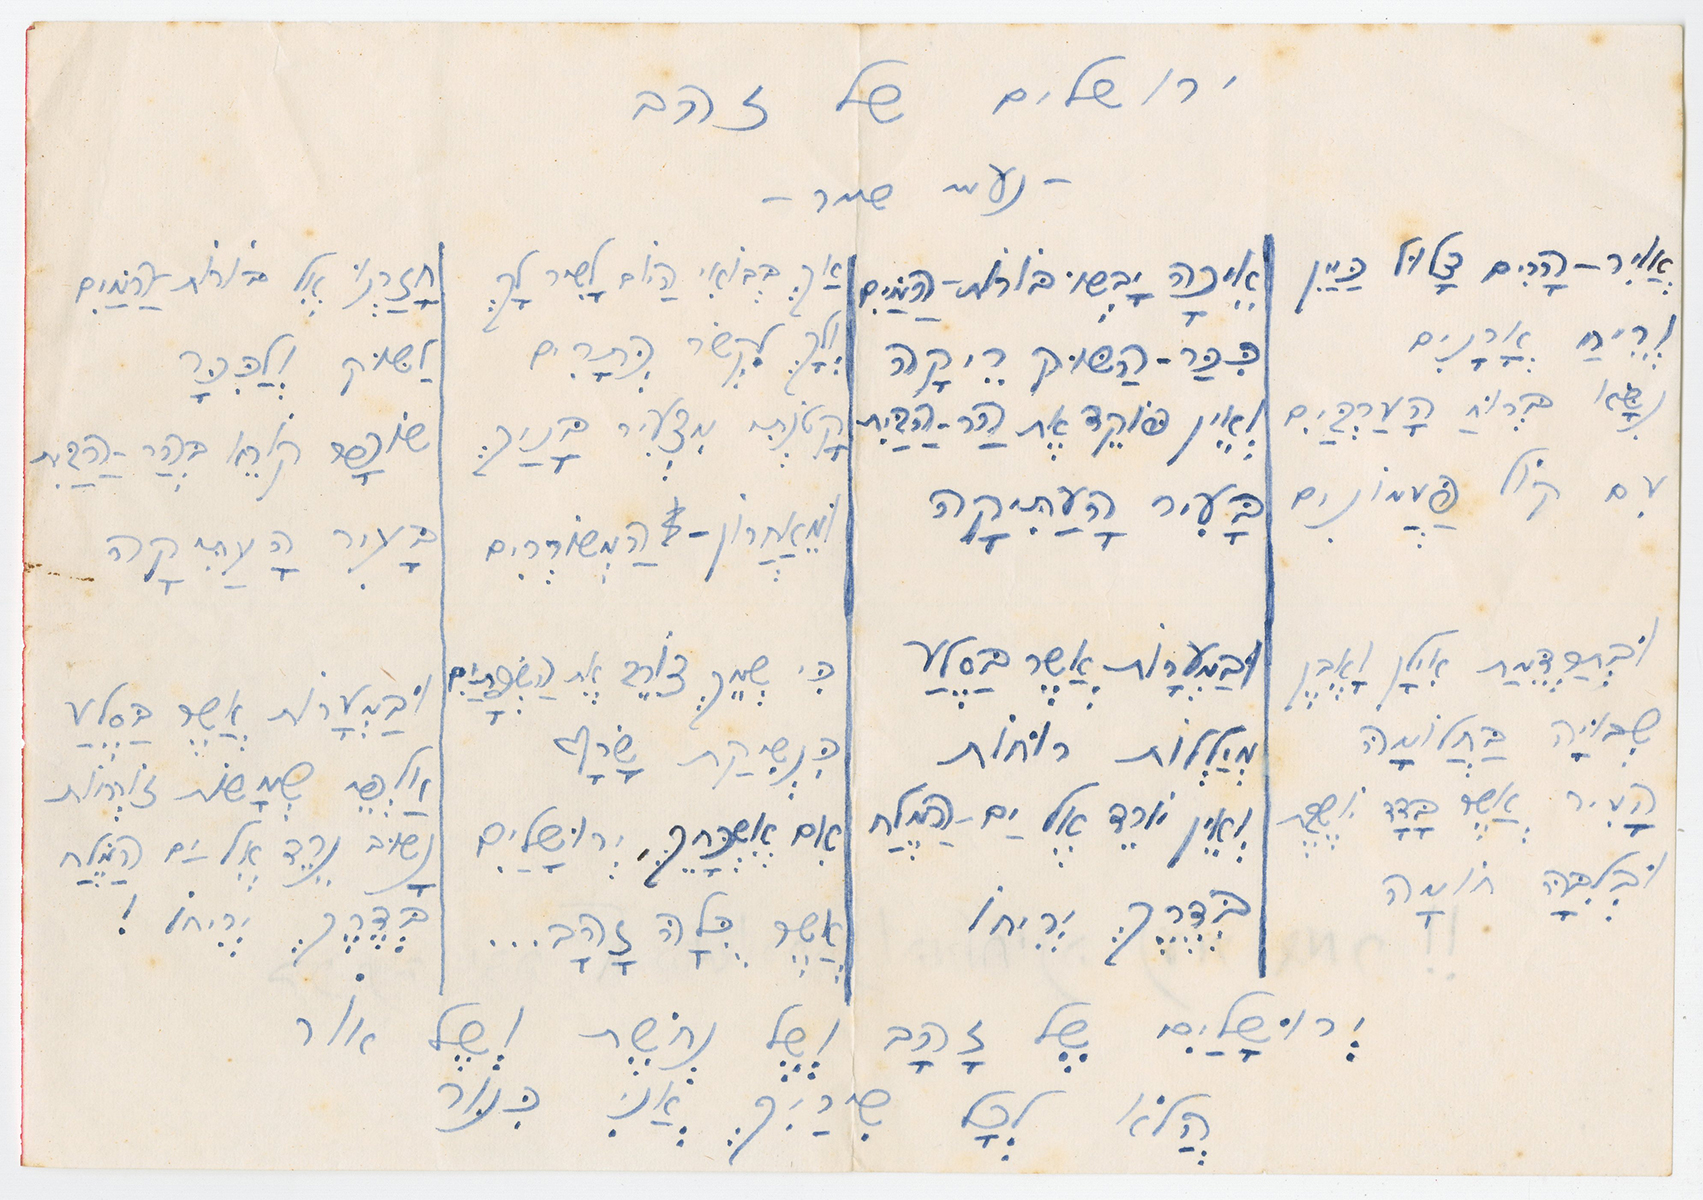 ירושלים של זהב
- נעמי שמר -
אֲוִיר-הָרִים צָלוּל כַּיַּיִן
וְרֵיחַ אֳרָנִים
נִשָּׂא בְּרוּחַ הָעַרְבַּיִם
עִם קוֹל פַּעֲמוֹנִים
וּבְתַרְדֵּמַת אִילָן וָאֶבֶן
שְׁבוּיָה בַּחֲלוֹמָהּ
הָעִיר אֲשֶׁר בָּדָד יוֹשֶׁבֶת
וּבְלִבָּהּ חוֹמָה
אֵיכָה יָבְשׁוּ בּוֹרוֹת-הַמַּיִם
כִּכַּר-הַשּׁוּק רֵיקָה
וְאֵין פּוֹקֵד אֶת הַר-הַבַּיִת
בָּעִיר הָעַתִּיקָה
וּבַמְּעָרוֹת אֲשֶׁר בַּסֶּלַע
מְיַלְּלוֹת רוּחוֹת
וְאֵין יוֹרֵד אֶל יַם-הַמֶּלַח
בְּדֶרֶךְ יְרִיחוֹ
אַךְ בְּבוֹאִי הַיּוֹם לָשִׁיר לָךְ
וְלָךְ לִקְשֹׁר כְּתָרִים
קָטֹנְתִּי מִצְּעִיר בָּנַיִךְ
וּמֵאַחֲרוֹן-הַמְשׁוֹרְרִים
כִּי שְׁמֵךְ צוֹרֵב אֶת הַשְּׂפָתַיִם
כִּנְשִׁיקַת שָׂרָף
אִם אֶשְׁכָּחֵךְ, יְרוּשָׁלַיִם
אֲשֶׁר כֻּלָּהּ זָהָב...
חָזַרְנוּ אֶל בּוֹרוֹת-הַמַּיִם
לַשּׁוּק וְלַכִּכָּר
שׁוֹפָר קוֹרֵא בְּהַר-הַבַּיִת
בָּעִיר הָעַתִּיקָה
וּבַמְּעָרוֹת אֲשֶׁר בַּסֶּלַע
אַלְפֵי שְׁמָשׁוֹת זוֹרְחוֹת
נָשׁוּב נֵרֵד אֶל יַם הַמֶּלַח
בְּדֶרֶךְ יְרִיחוֹ!
יְרוּשָׁלַיִם שֶׁל זָהָב וְשֶׁל נְחֹשֶׁת וְשֶׁל אוֹר
הֲלֹא לְכָל שִׁירַיִךְ אֲנִי כִּנּוֹר